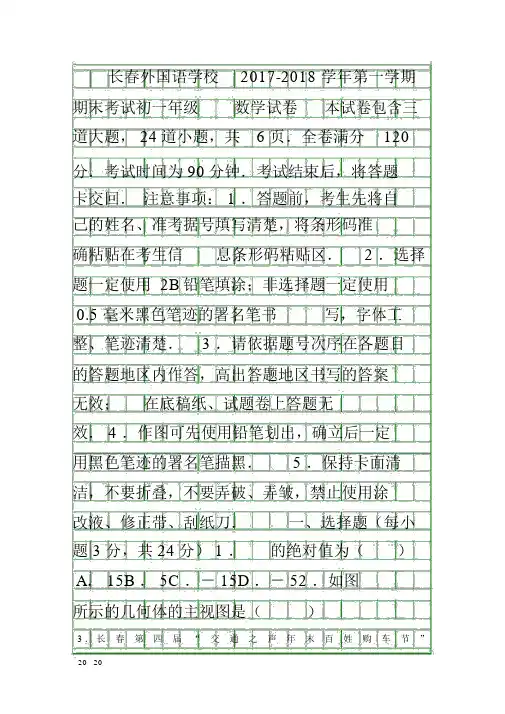 长春外国语学校 2017-2018 学年第一学期
期末考试初一年级 数学试卷 本试卷包含三
道大题, 24 道小题, 共 6 页. 全卷满分 120
分. 考试时间为 90 分钟. 考试结束后, 将答题
卡交回. 注意事项: 1 . 答题前, 考生先将自
己的姓名、准考据号填写清楚, 将条形码准
确粘贴在考生信 息条形码粘贴区. 2 . 选择
题一定使用 2B 铅笔填涂; 非选择题一定使用
0.5 毫米黑色笔迹的署名笔书 写, 字体工
整、笔迹清楚. 3 . 请依据题号次序在各题目
的答题地区内作答, 高出答题地区书写的答案
无效; 在底稿纸、试题卷上答题无
效. 4 . 作图可先使用铅笔划出, 确立后一定
用黑色笔迹的署名笔描黑. 5 . 保持卡面清
洁, 不要折叠, 不要弄破、弄皱, 禁止使用涂
改液、修正带、刮纸刀. 一、选择题 (每小
题 3 分, 共 24 分) 1 . 的绝对值为 ( )
A. 15B . 5C . - 15D . - 52 . 如图
所示的几何体的主视图是 ( )
3 . 长春第四届 “ 交通之声年末百姓购车节 ”
20 20